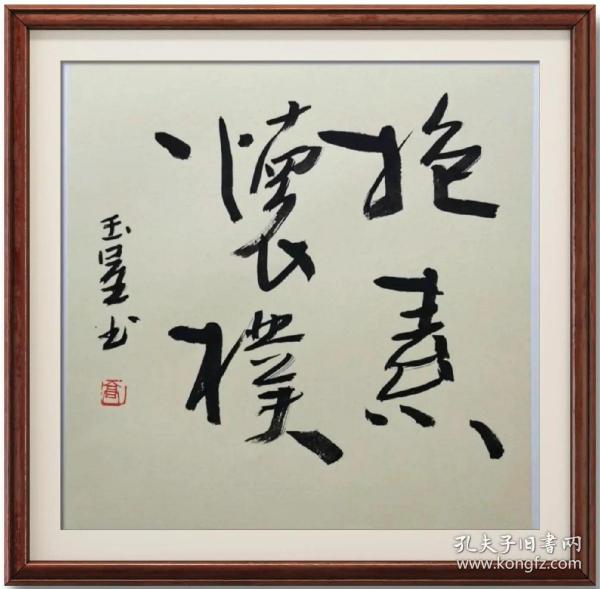 抱素
懷樸
玉星书
喬
孔夫子旧书网
www.kongfz.com